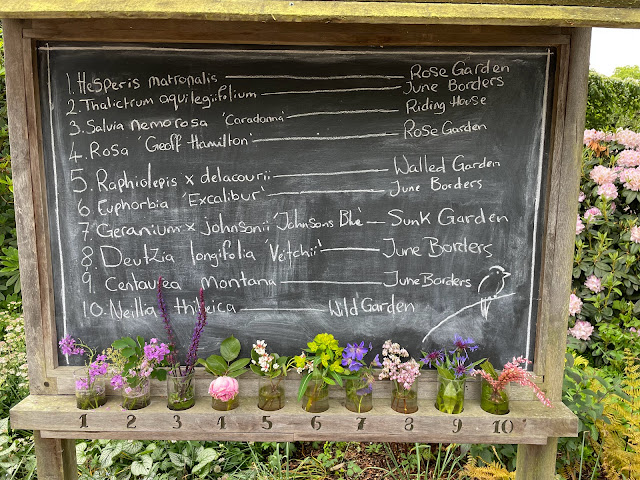 1. Hesperis matronalis Rose Garden
2. Thalictrum aquilegiifolium June Borders
3. Salvia nemorosa 'Caradonna' Riding House
4. Rosa 'Geoff Hamilton' Rose Garden
5. Raphiolepis x delacourii Walled Garden
6. Euphorbia 'Excalibur' June Borders
7. Geranium x johnsonii 'Johnsons Blue' Sunk Garden
8. Deutzia longifolia 'Veitchii' June Borders
9. Centaurea montana June Borders
10. Neillia thibetica Wild Garden
1 2 3 4 5 6 7 8 9 10